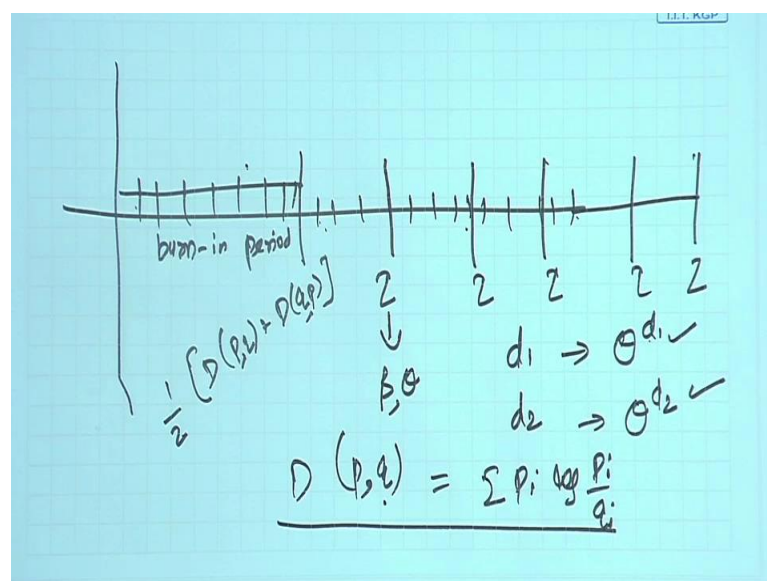 I.I.T. KGP
burn-in period
1/2 [D(p,q) + D(q,p)]
Z Z Z Z Z
↓
β, θ
d1 → θ^d1 ✓
d2 → θ^d2 ✓
D (p,q) = Σ pi log pi/qi